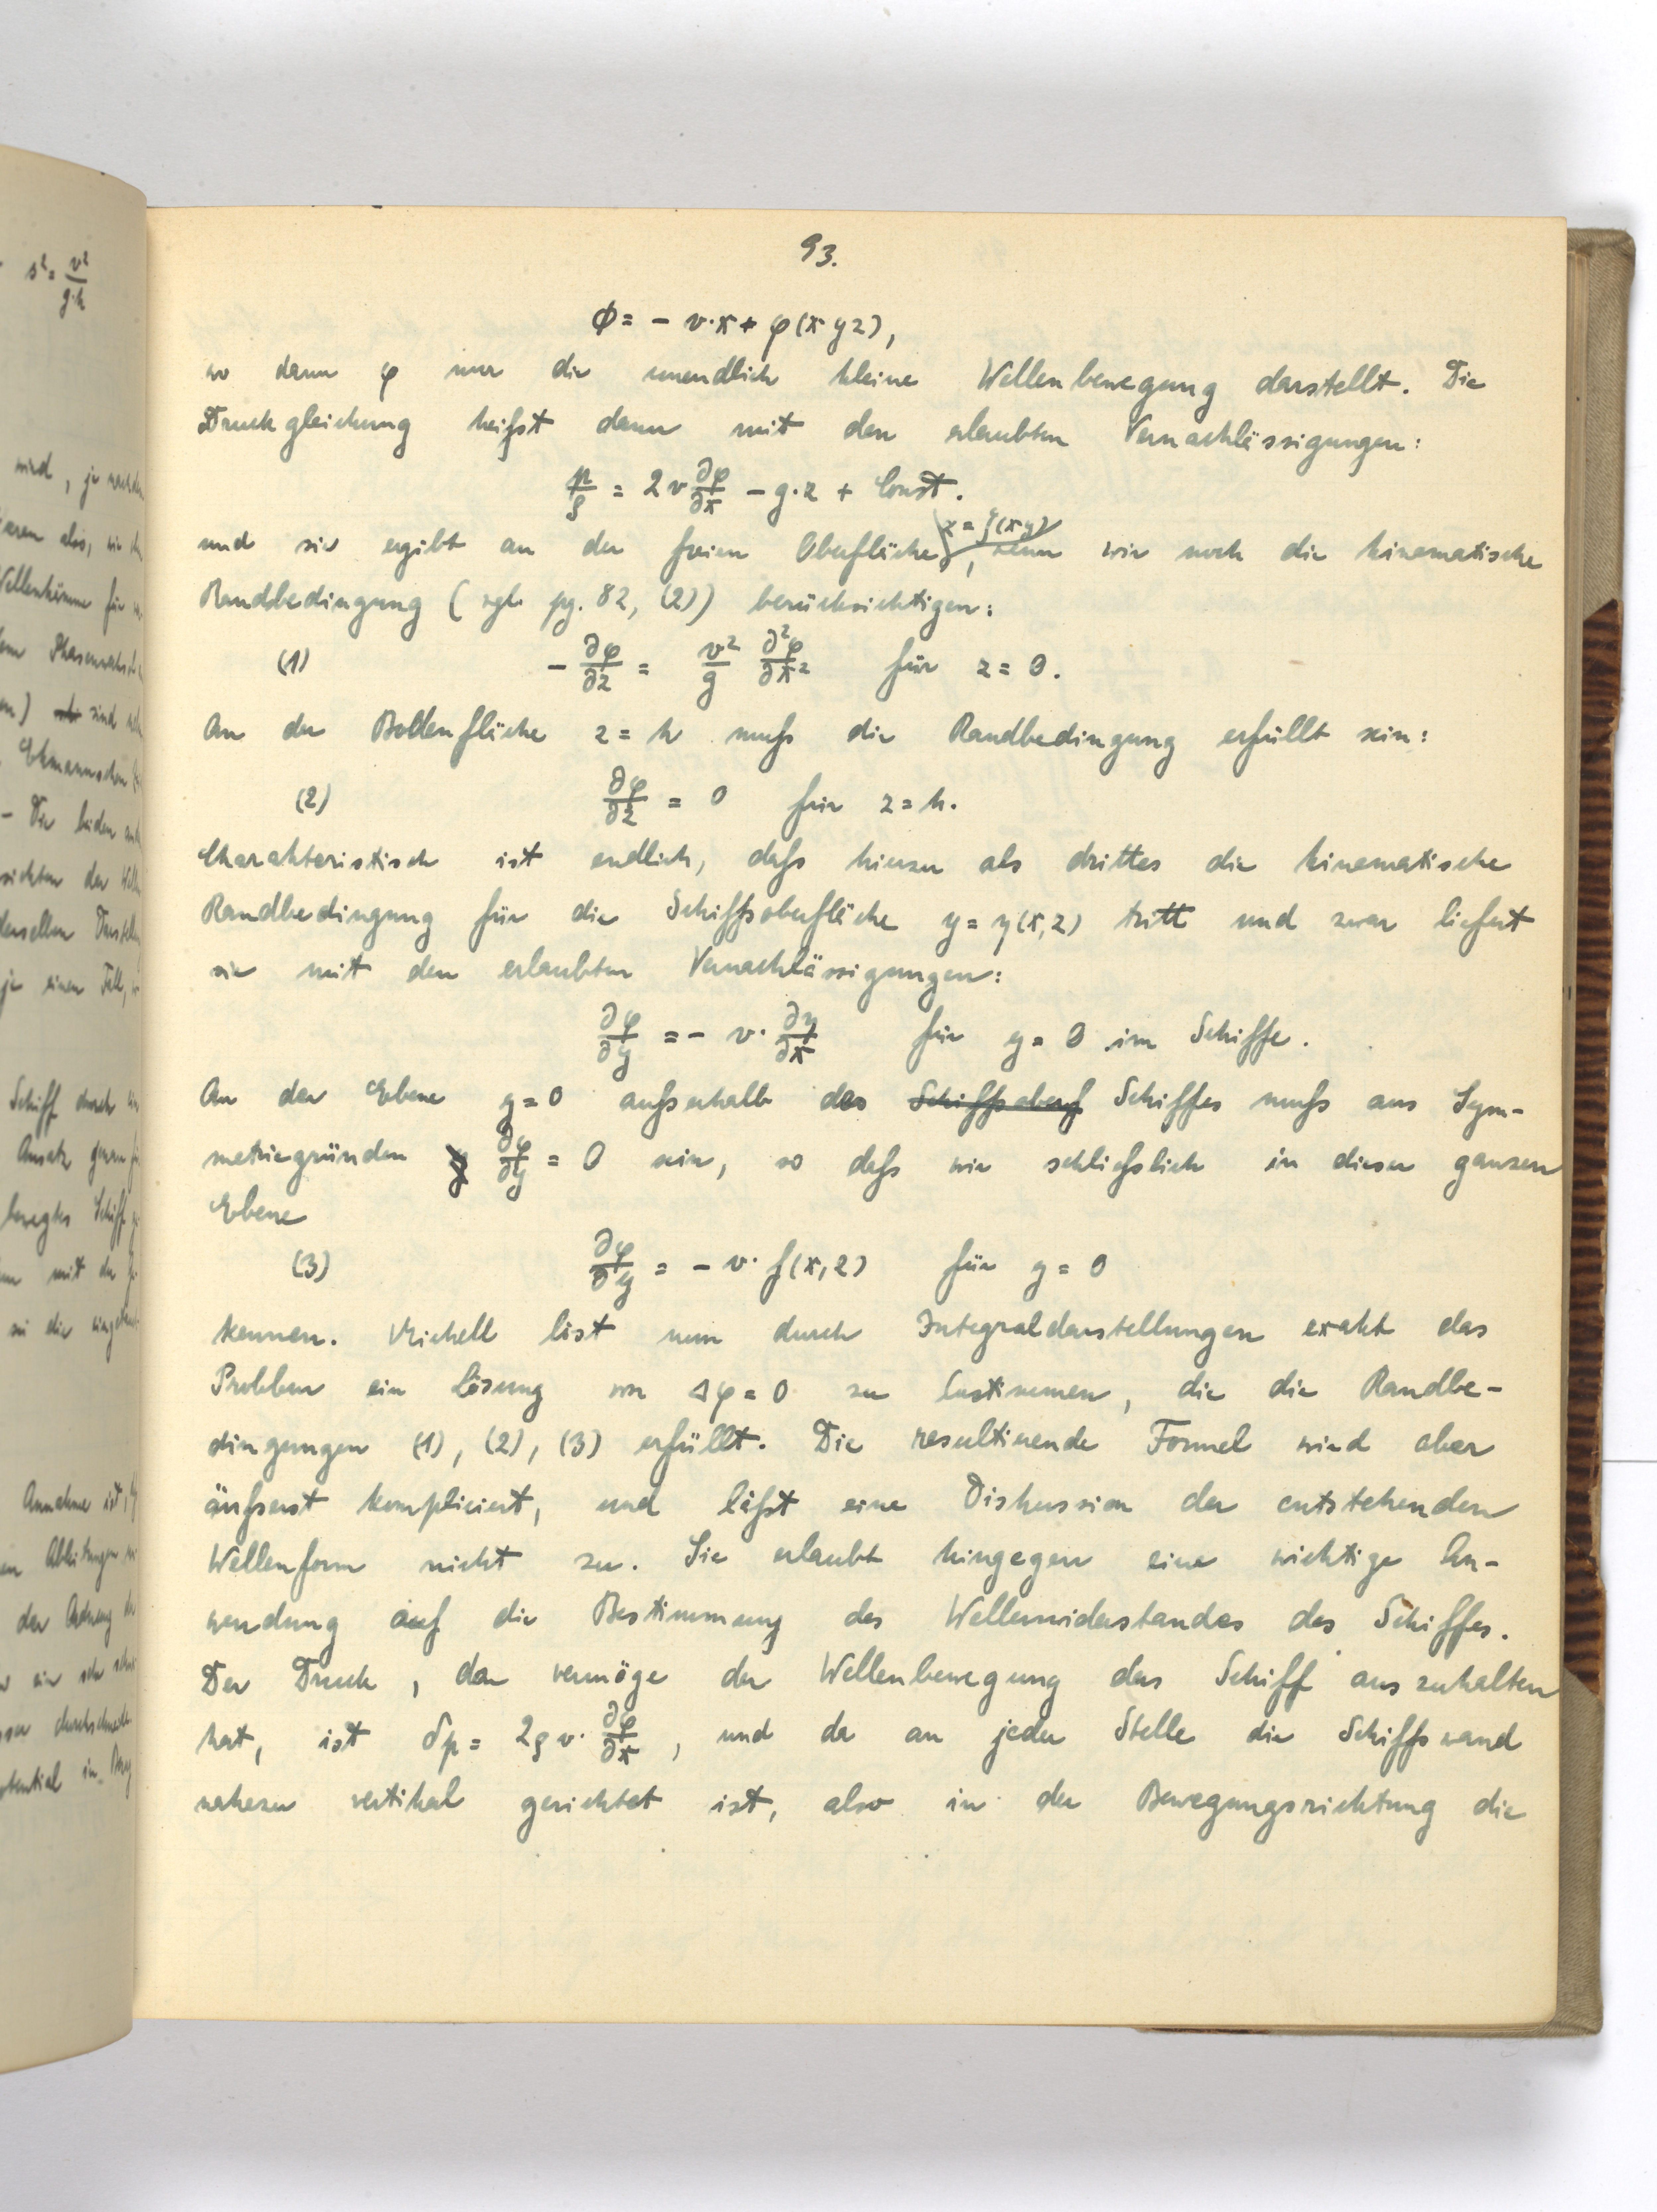 93.
ϕ = - v·x + φ(x y z),
wo dann φ nur die unendlich kleine Wellenbewegung darstellt. Die
Druckgleichung heißt dann mit den erlaubten Vernachlässigungen:
p/ρ = 2v ∂φ/∂x - g·z + Const.
z = ζ(x y)
und sie ergibt an der freien Oberfläche, wenn wir noch die kinematische
Randbedingung (vgl. pg. 82, (2)) berücksichtigen:
(1) - ∂φ/∂z = v²/g ∂²φ/∂x² für z = 0.
An der Bodenfläche z = h muß die Randbedingung erfüllt sein:
(2) ∂φ/∂z = 0 für z = h.
Charakteristisch ist endlich, daß hierzu als drittes die kinematische
Randbedingung für die Schiffsoberfläche y = η(x,z) tritt und zwar liefert
sie mit den erlaubten Vernachlässigungen:
∂φ/∂y = - v· ∂η/∂x für y = 0 im Schiffe.
An der Ebene y = 0 außerhalb des Schiffsoberf Schiffes muß aus Sym-
metriegründen ∂φ/∂y = 0 sein, so daß wir schließlich in dieser ganzen
Ebene
(3) ∂φ/∂y = - v· f(x,z) für y = 0
kennen. Michell löst nun durch Integraldarstellungen exakt das
Problem ein Lösung von Δφ = 0 zu bestimmen, die die Randbe-
dingungen (1), (2), (3) erfüllt. Die resultierende Formel wird aber
äußerst kompliciert, und läßt eine Diskussion der entstehenden
Wellenform nicht zu. Sie erlaubt hingegen eine wichtige An-
wendung auf die Bestimmung des Wellenwiderstandes des Schiffes.
Der Druck, den vermöge der Wellenbewegung das Schiff auszuhalten
hat, ist δp = 2ρv· ∂φ/∂x, und da an jeder Stelle die Schiffswand
nahezu vertikal gerichtet ist, also in der Bewegungsrichtung die
s² = v²/g·h